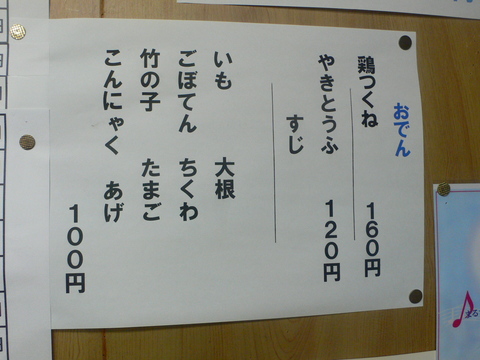 おでん
鶏つくね 160円
やきとうふ 120円
すじ
いも 大根
ごぼてん ちくわ
竹の子 たまご
こんにゃく あげ
100円